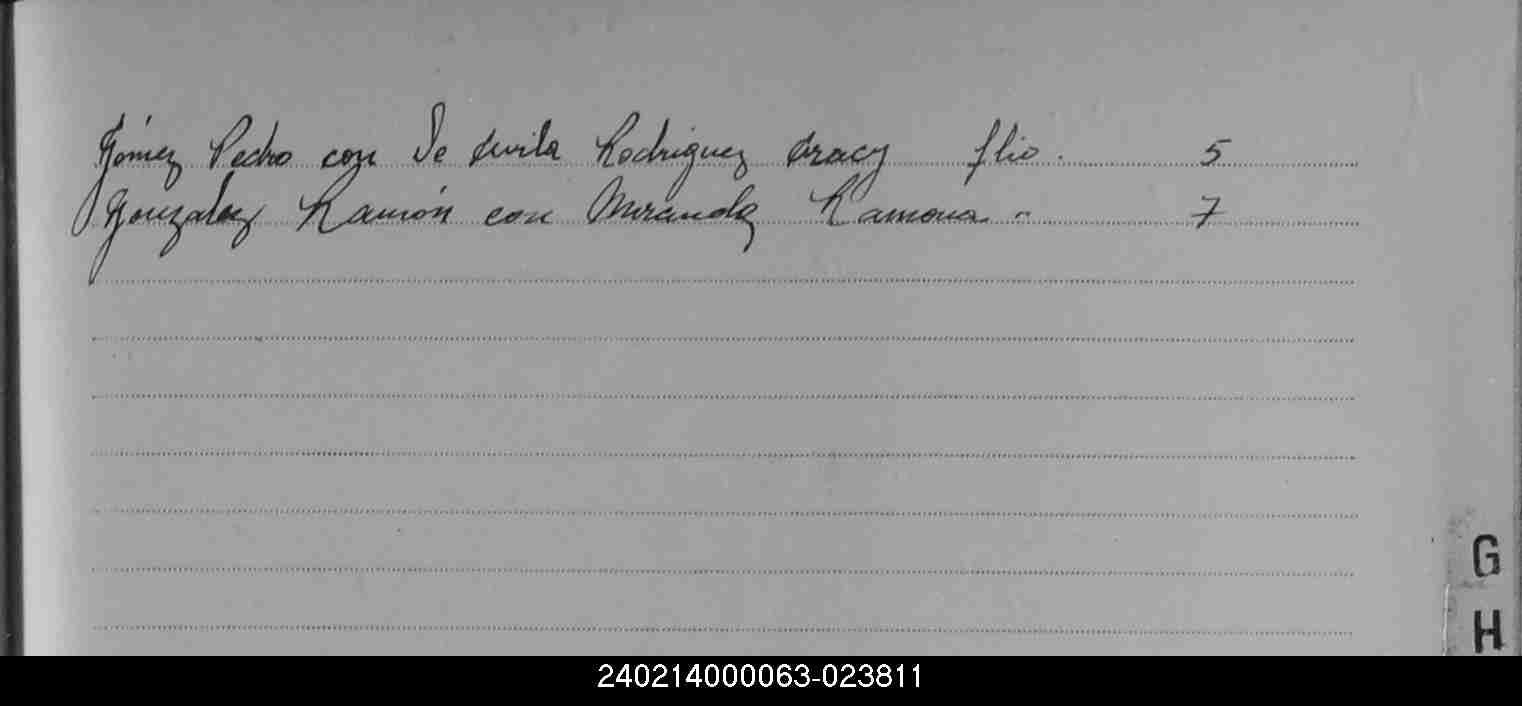 Gómez Pedro con De Avila Rodriguez Aracy flio. 5
González Ramón con Miranda Ramona " 7
G
H
240214000063-023811